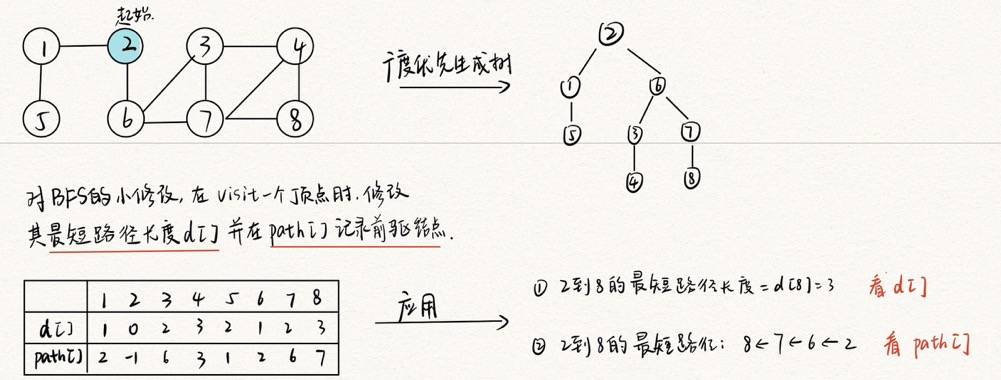 起始.
1 2 3 4
5 6 7 8
广度优先生成树
2
1 6
5 3 7
4 8
对BFS的小修改,在visit一个顶点时.修改
其最短路径长度d[]并在path[]记录前驱结点.
1 2 3 4 5 6 7 8
d[] 1 0 2 3 2 1 2 3
path[] 2 -1 6 3 1 2 6 7
应用
① 2到8的最短路径长度=d[8]=3 看d[]
② 2到8的最短路径: 8←7←6←2 看 path[]